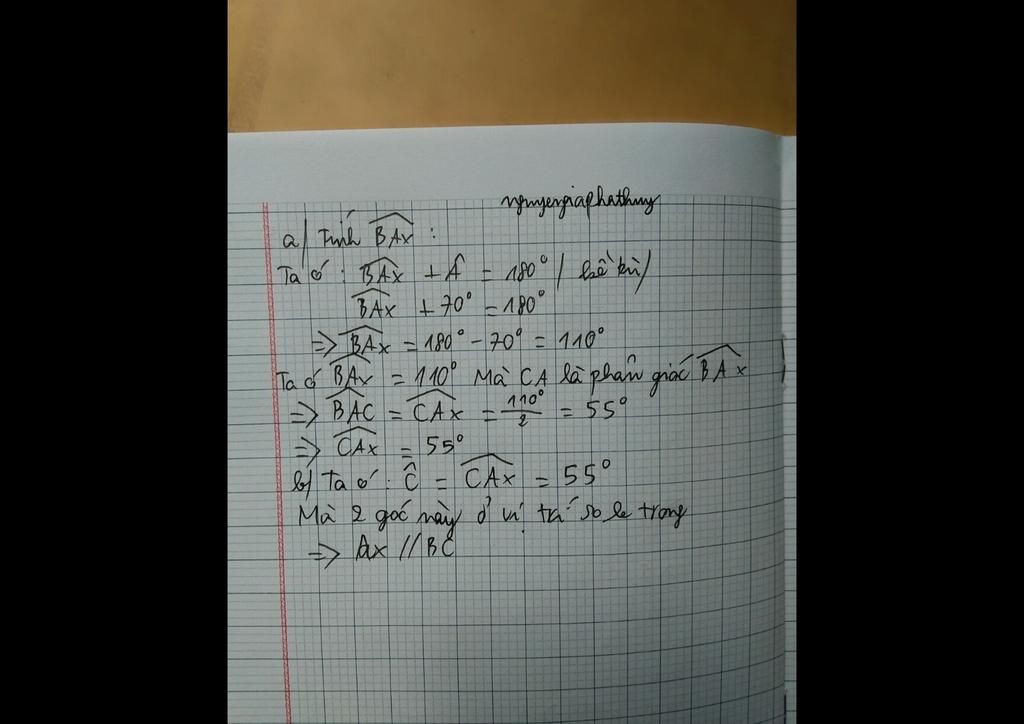 nguyengiaphathuy
a) Tính BAx :
Ta có : BAx + Â = 180° ( kề bù )
BAx + 70° = 180°
=> BAx = 180° - 70° = 110°
Ta có BAx = 110° Mà CA là phân giác BAx
=> BAC = CAx = 110°/2 = 55°
=> CAx = 55°
b) Ta có : Ĉ = CAx = 55°
Mà 2 góc này ở vị trí so le trong
=> Ax // BC